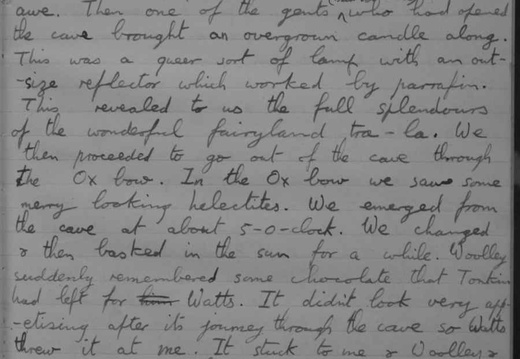 awe. Then one of the gents who had opened
the cave brought an overgrown candle along.
This was a queer sort of lamp with an out-
-size reflector which worked by parrafin.
This revealed to us the full splendours
of the wonderful fairyland tra-la. We
then proceeded to go out of the cave through
the Ox bow. In the Ox bow we saw some
merry looking helectites. We emerged from
the cave at about 5-0-clock. We changed
& then basked in the sun for a while. Woolley
suddenly remembered some chocolate that Tonkin
had left for him Watts. It didn't look very app-
-etising after its journey through the cave so Watts
threw it at me. It stuck to me & Woolley &